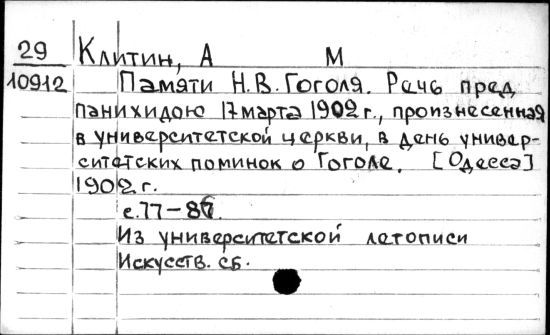 29 Клитин, А М
10912 Памяти Н.В. Гоголя. Речь пред
панихидою 17 марта 1902 г., произнесенная
в университетской церкви, в день универ-
ситетских поминок о Гоголе. [Одесса]
1902 г.
с. 77-86.
Из университетской летописи
Искусств. сб.